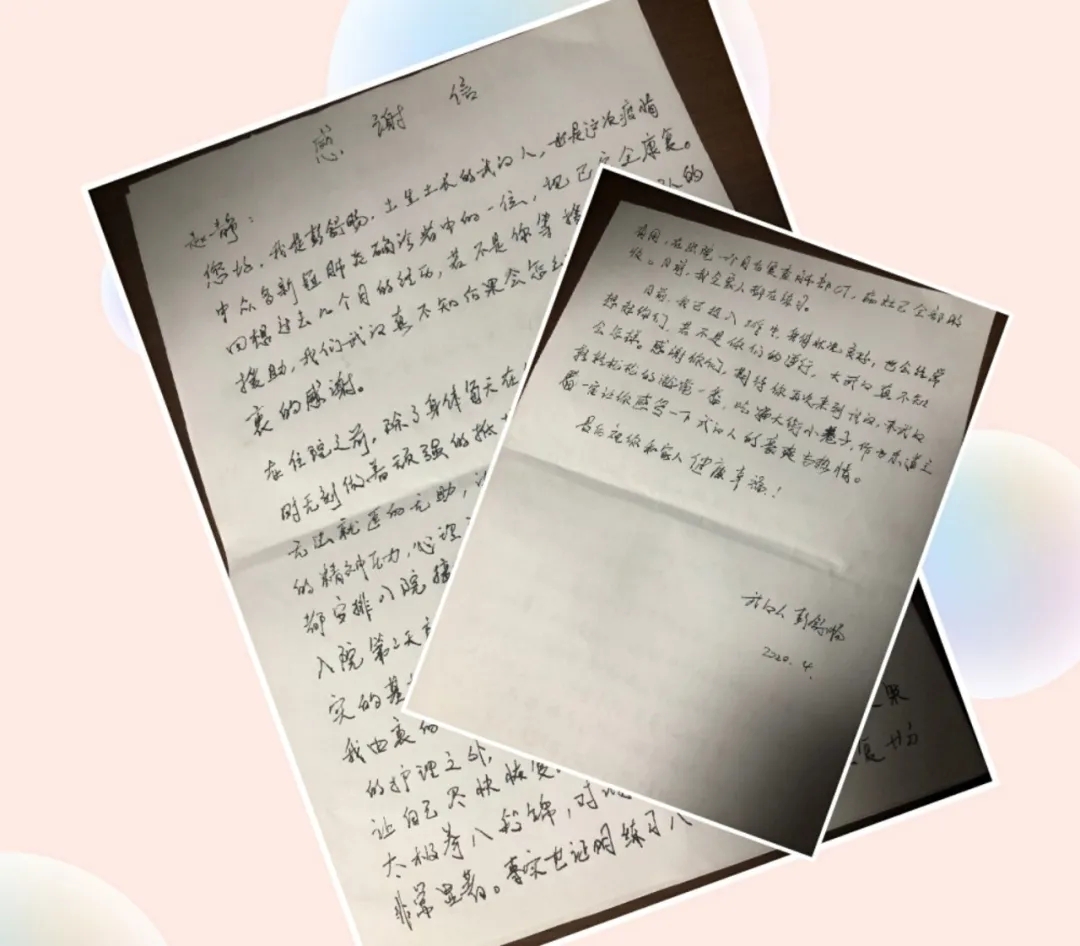 感谢信
赵静：
您好，我是彭舒畅，土生土长的武汉人，也是这次疫情
中众多新冠肺炎确诊者中的一位，现已完全康复。
回想过去几个月的经历，若不是你等 的
援助，我们武汉真不知后果会怎么
衷的感谢。
在住院之前，除了身体每天在
时无刻做着顽强的抵
无法就医的无助，
的精神压力，心理
都安排入院接
入院第2天
实的基
我由衷的
的护理之外，
让自己尽快恢复。
太极拳八段锦，对
非常显著。事实也证明练习八
效果
复 功
有关，在出院一个月后复查肺部CT，病灶已全部吸
收。目前，我全家人都在练习。
目前，我已投入工作中，身体状况良好，也会经常
想起你们，若不是你们的逆行，大武汉真不知
会怎样。感谢你们，期待你再次来到武汉，来武汉
轻轻松松的游览一番，吃遍大街小巷子，作为东道主
一定让你感受一下武汉人的豪爽与热情。
最后祝你和家人健康幸福！
武汉人 彭舒畅
2020.4.